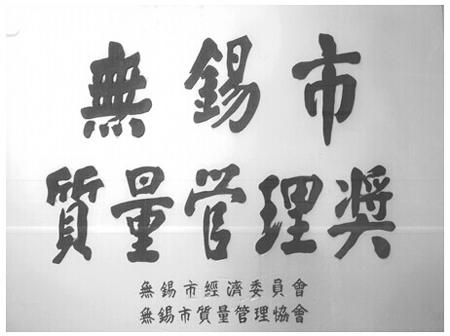 無錫市
質量管理奬
無錫市經濟委員會
無錫市質量管理協會